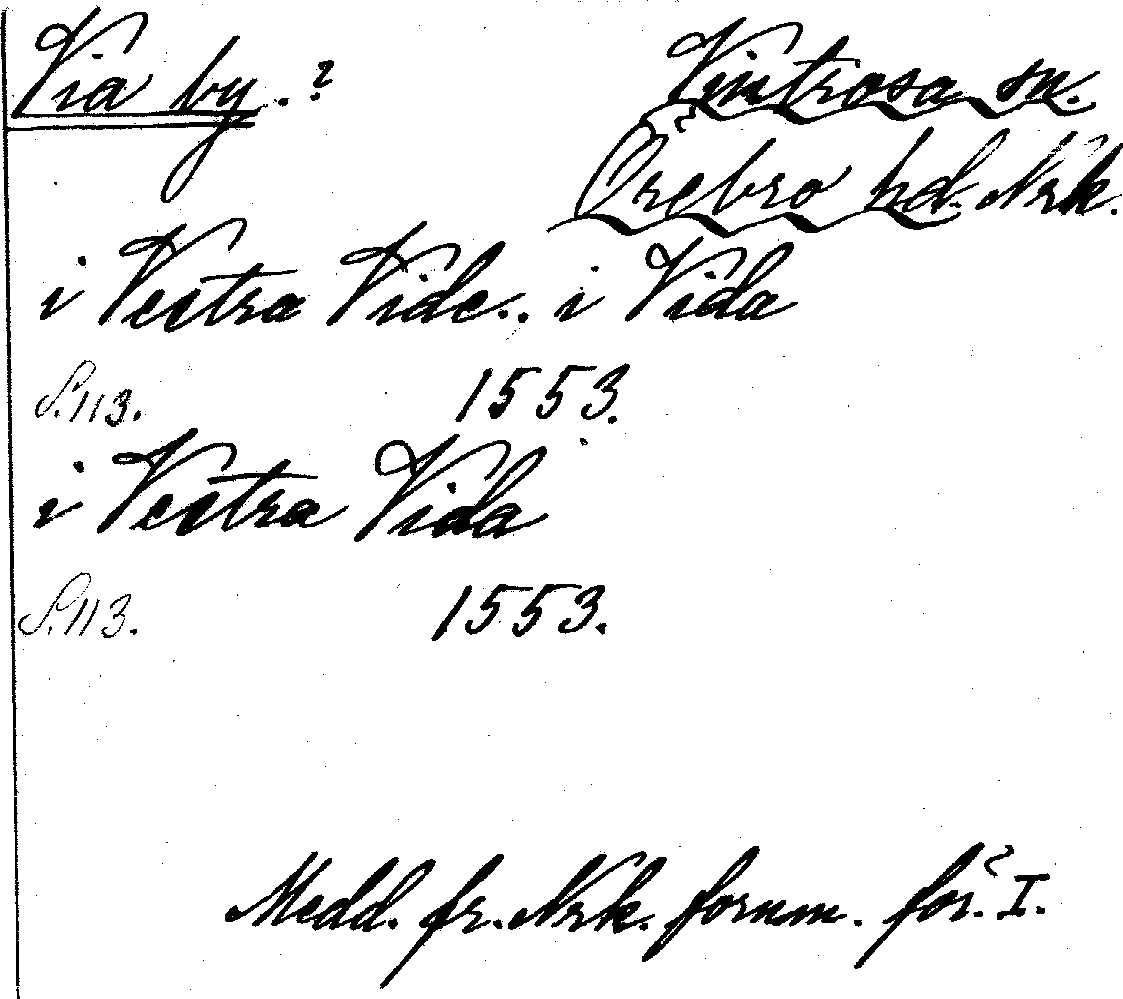 Via by. ? Vintrosa sn.
Örebro hd. Nrk.
i Vestra Vide.. i Vida
S. 113. 1553.
i Vestra Vida
S. 113. 1553.
Medd. fr. Nrk. fornm. för. I.